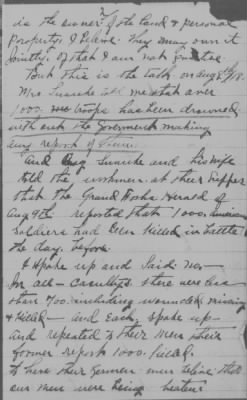 is the owner of the land & personal
Property I believe. They may own it
jointly. Of that I am not positive.
But this is the talk on Aug 8th/18.
Mrs told me that over
1000. troops has been drowned
without the Government making
any report of them.
And Aug and his wife
told the workmen at their supper
that the Grand Herald of
Aug 9th reported that 1000. American
Soldiers had been killed in battle
the day before
I spoke up and said No-
in all - Casualtys there were less
than 700. including wounded, missing
& killed - and Each spoke up -
and repeated to their men their
former report 1000. killed.
To have their German men believe that
our men were being beaten